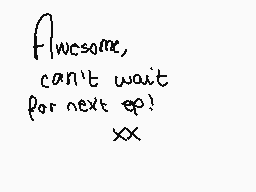 Awesome,
can't wait
for next ep!
xx